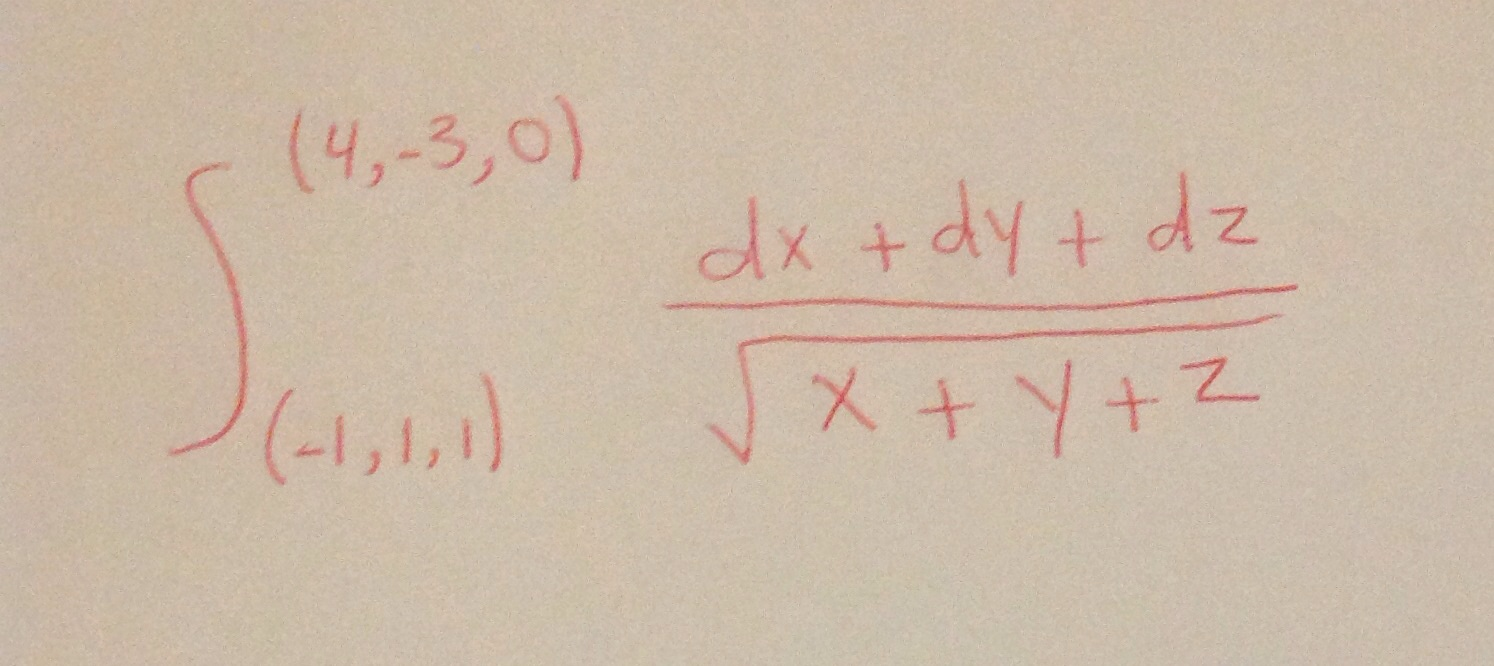 ∫_{(-1,1,1)}^{(4,-3,0)} \frac{dx + dy + dz}{\sqrt{x + y + z}}